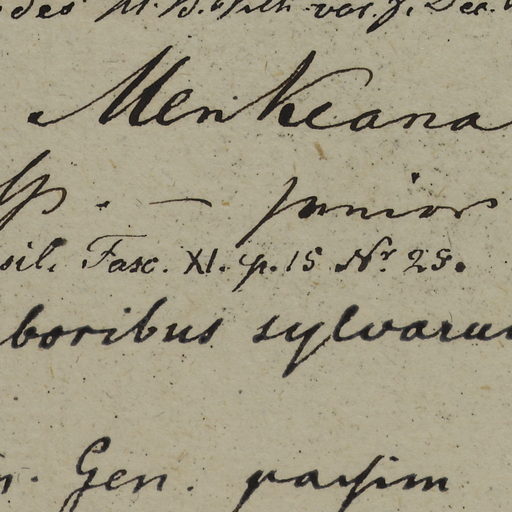 var. f. Dec.
Menkeana
Sp. — junior
sil. Fasc. XI. p. 15 Nr. 25.
boribus sylvarum
n. Gen. passim